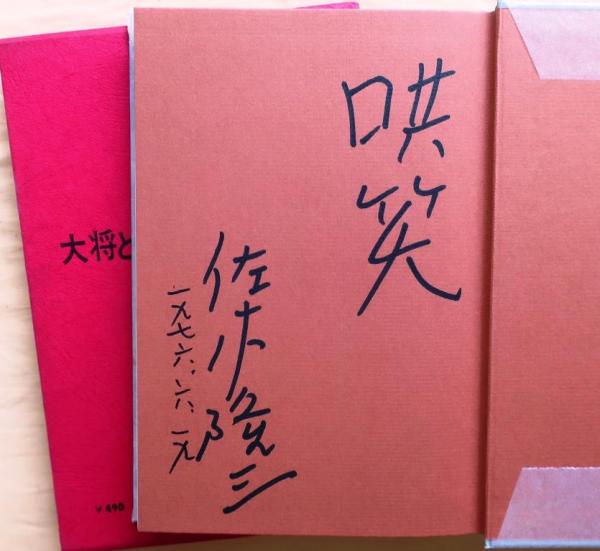 哄笑
佐木隆三
一九七六、六、一九
大将と
¥490